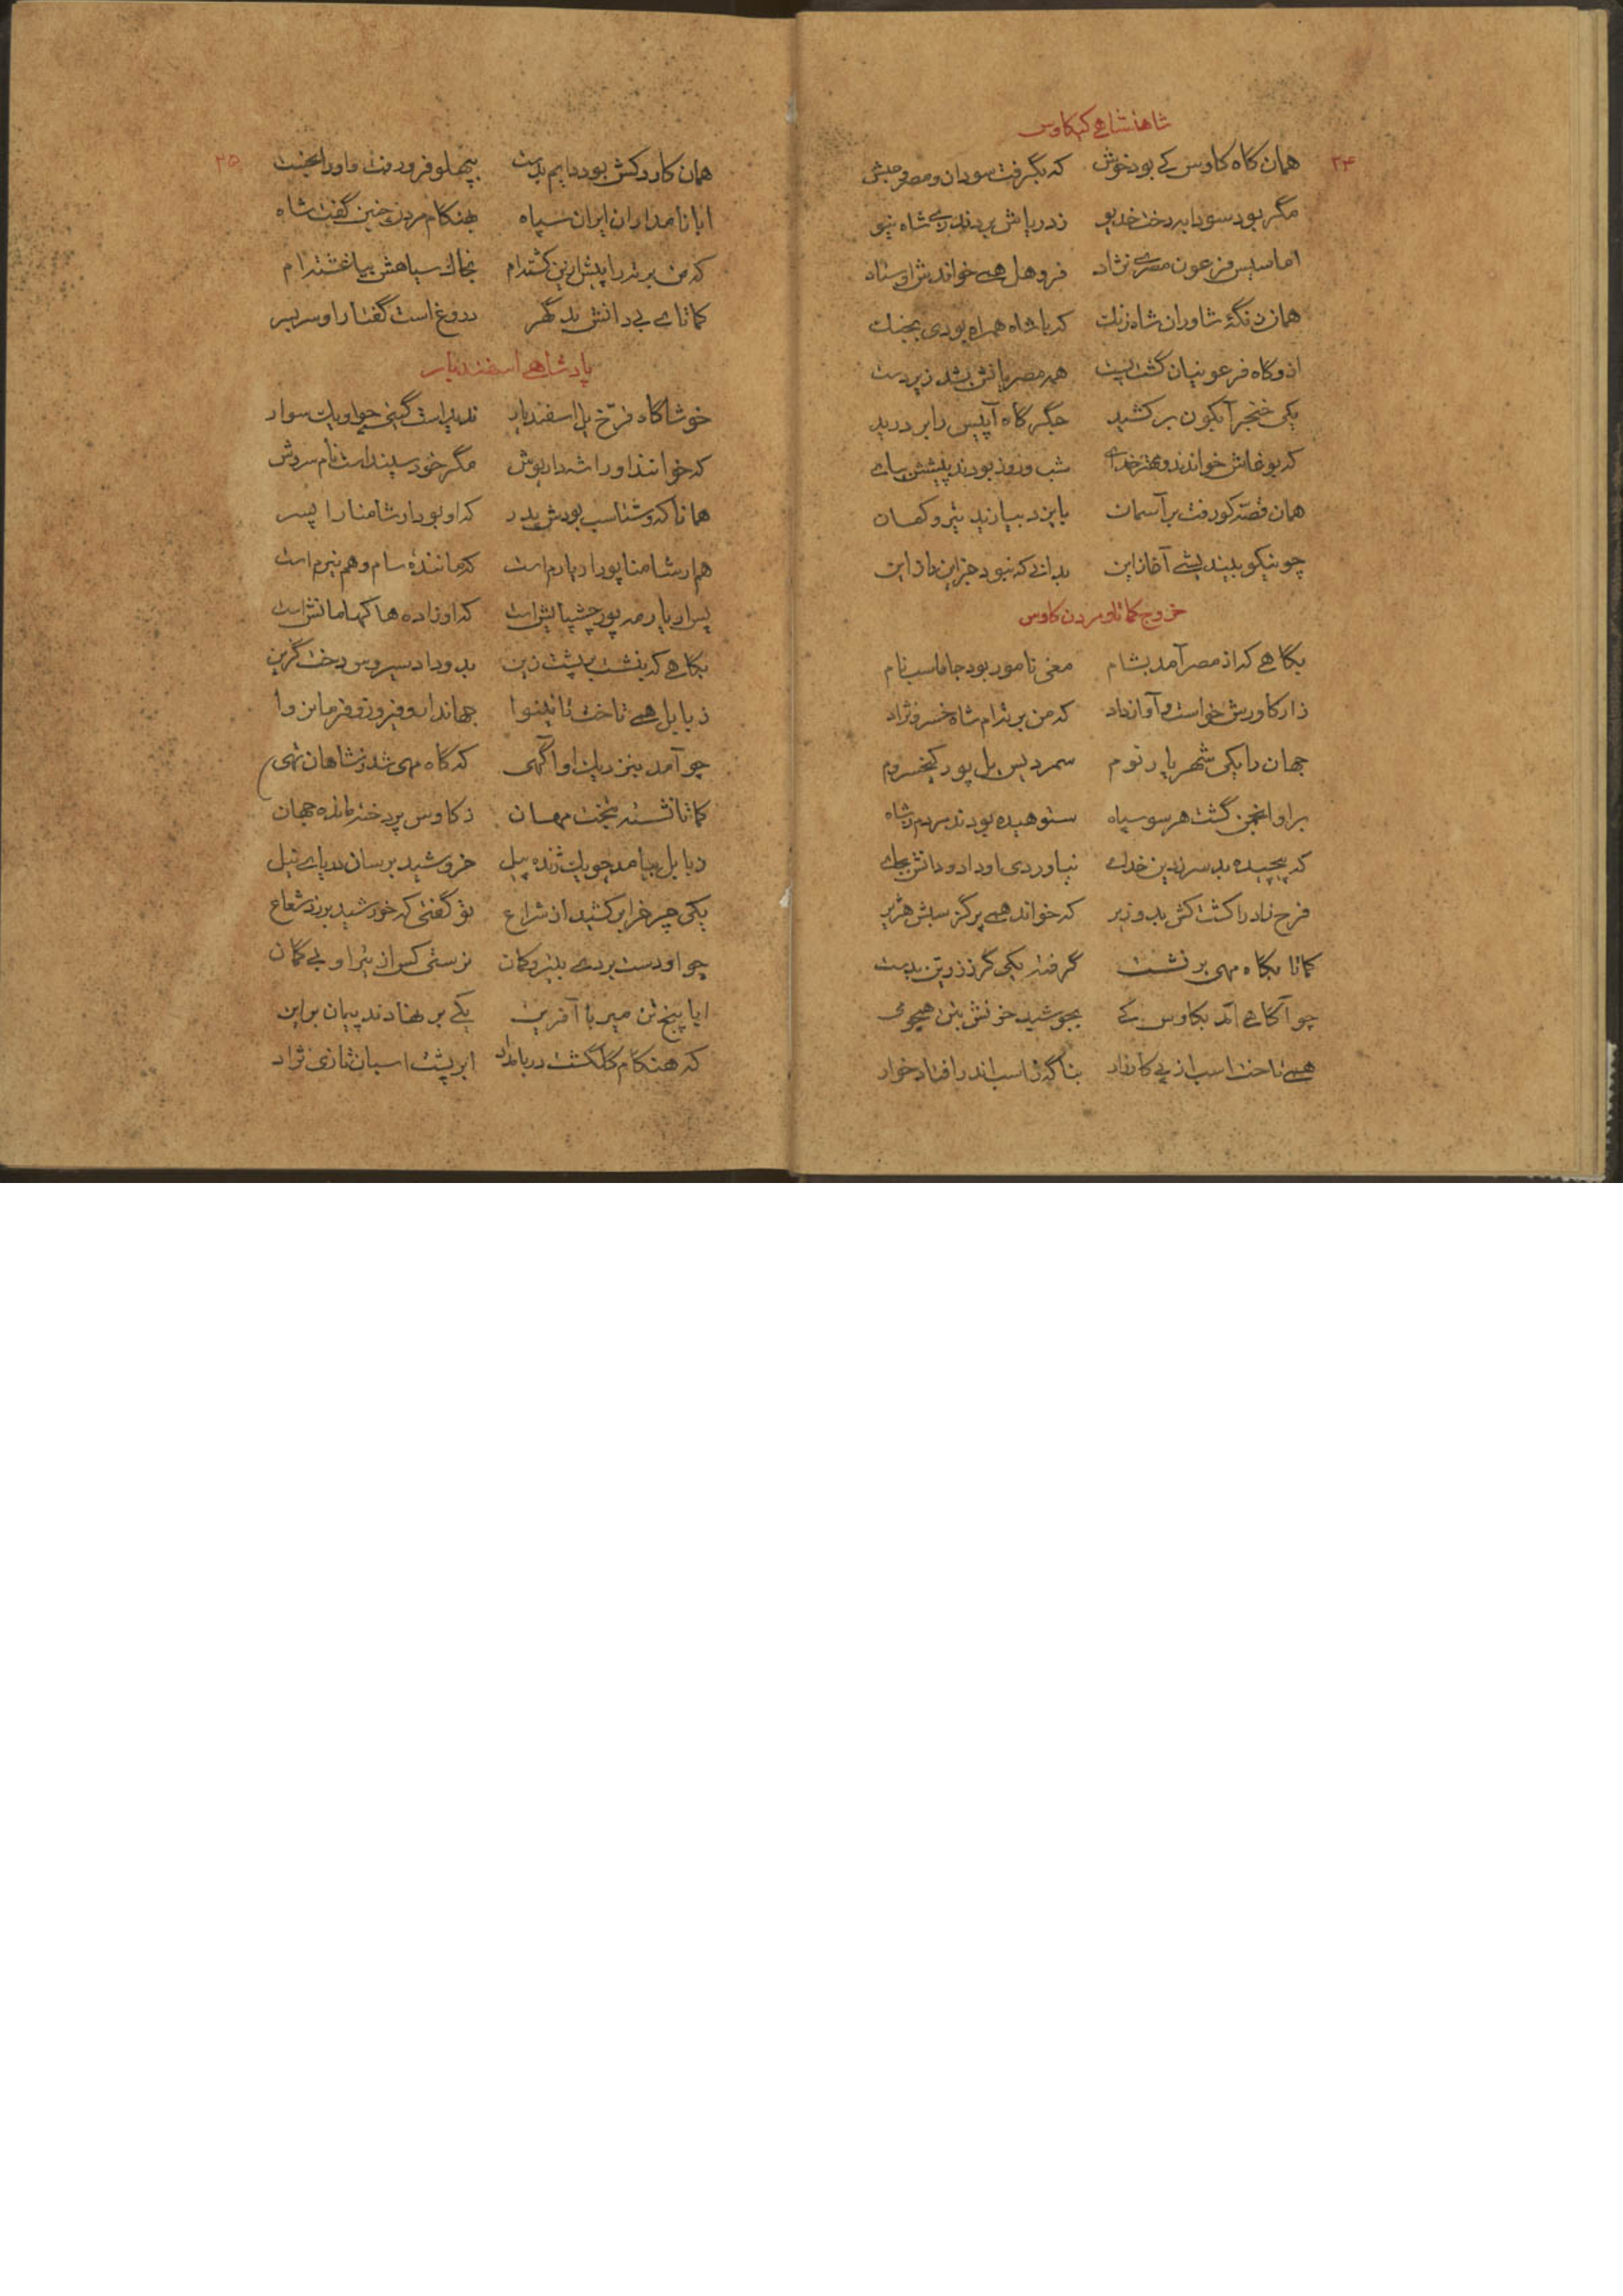 شاهنشاهی کیکاوس
۲۴
همان گاه کاوس کی بود خوش که بگرفت سودان و مصر و حبش
مگر بود سودابه دخت خدیو ز دریاش بردند زی شاه نیو
اماسیس فرعون مصری نژاد فروهل همی خواندش اوستاد
همان زنگهٔ شاوران شاه زنگ که با شاه همراه بودی بجنگ
ازو گاه فرعونیان گشت پست همه مصریانش بشد زیردست
یکی خنجر آبگون برکشید جگرگاه آپیس را بر درید
که بوغانش خواندند و مهتر خدای شب و روز بودند پیشش بپای
همان قصه کو رفت بر آسمان بایزد بیازید تیر و کمان
چو نیکو ببیندیشی آغاز این بدانی که نبود جز این راز این
خروج کماتا و مردن کاوس
بگاهی که از مصر آمد بشام مغی نامور بود جاماسب نام
ز ارکادرش خواست و آواز داد که من برتدام شاه خسرو نژاد
جهان را یکی شهریار نوم سمردیس یل پور کیخسروم
بر او انجمن گشت هر سو سپاه ستوهیده بودند مردم ز شاه
که پیچیده بد سر ز دین خدای نیاوردی او داد و دانش بجای
فرخ زاد را کشت کش بد وزیر که خواند همی پرگزسپش هژیر
کماتا بگاه مهی بر نشست گرفته یکی گرز زرین بدست
چو آگاهی آمد بکاوس کی بجوشید خونش بتن همچو می
همی تاخت اسب از پی کارزار بناگه ز اسب اندر افتاد خوار
۲۵
همان کارد کش بود دایم بدست بپهلو فرو رفت و او را بخست
ابا نامداران ایران سپاه بهنگام مردن چنین گفت شاه
که من برتد را پیش ازین کشته‌ام بخاک سیاهش بیاغشته‌ام
کماتای بی دانش بد گهر دروغ است گفتار او سربسر
پادشاهی اسفندیار
خوشا گاه فرّخ یل اسفندیار ندیداست گیتی چو او یک سوار
که خوانند او را شه داریوش مگر خود سپنداست نام سروش
همانا که وشتاسب بودش پدر که او بود ارشامنا را پسر
هم ارشامنا پور اریارم است که مانندهٔ سام و هم نیرم است
پس اریارمه پور چیشپایش است که او زادهٔ هاکهامانش است
بگاهی که بنشست بر پشت زین بدو داد سیروس دخت گزین
ز بابل همی تاخت تا نینوا جهاندار و فیروز و فرمانروا
چو آمد بنزدیک او آگهی که گاه مهی شد ز شاهان تهی
کماتا نشسته بتخت مهان ز کاوس پردخته مانده جهان
ز بابل بیامد چو یک ژنده پیل خروشید برسان دریای نیل
یکی چرخ را بر کشید از شراع تو گفتی که خورشید بر زد شعاع
چو او دست بردی بتیر و کمان نرستی کس از تیر او بی گمان
ابا پنج تن میر با آفرین یکی بر نهادند پیمان براین
که هنگام گلگشت در بامداد ابر پشت اسبان تازی نژاد